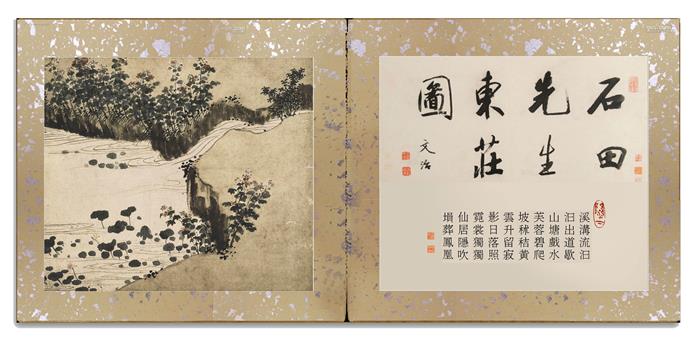 石田
先生
東莊
圖
文治
溪溝流汩
汩出道歇
山塘戲水
芙蓉碧爬
坡秫秸黃
雲升留寂
影日落照
霓裳獨獨
仙居隱吹
塤葬鳳凰